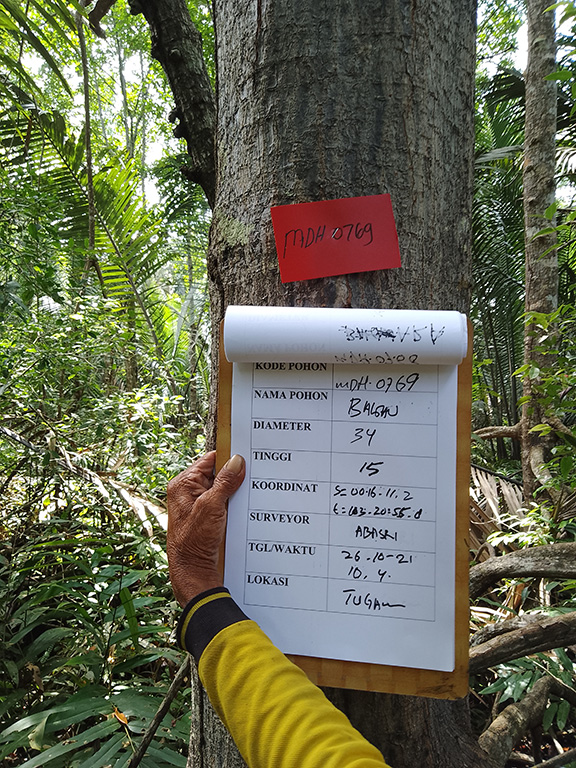 MDH 0769
KODE POHON mDH.0769
NAMA POHON BAKAU
DIAMETER 34
TINGGI 15
KOORDINAT S=00.16.11.2
E=103.20.56.0
SURVEYOR ABASRI
TGL/WAKTU 26.10-21
10.4.
LOKASI TUGAU